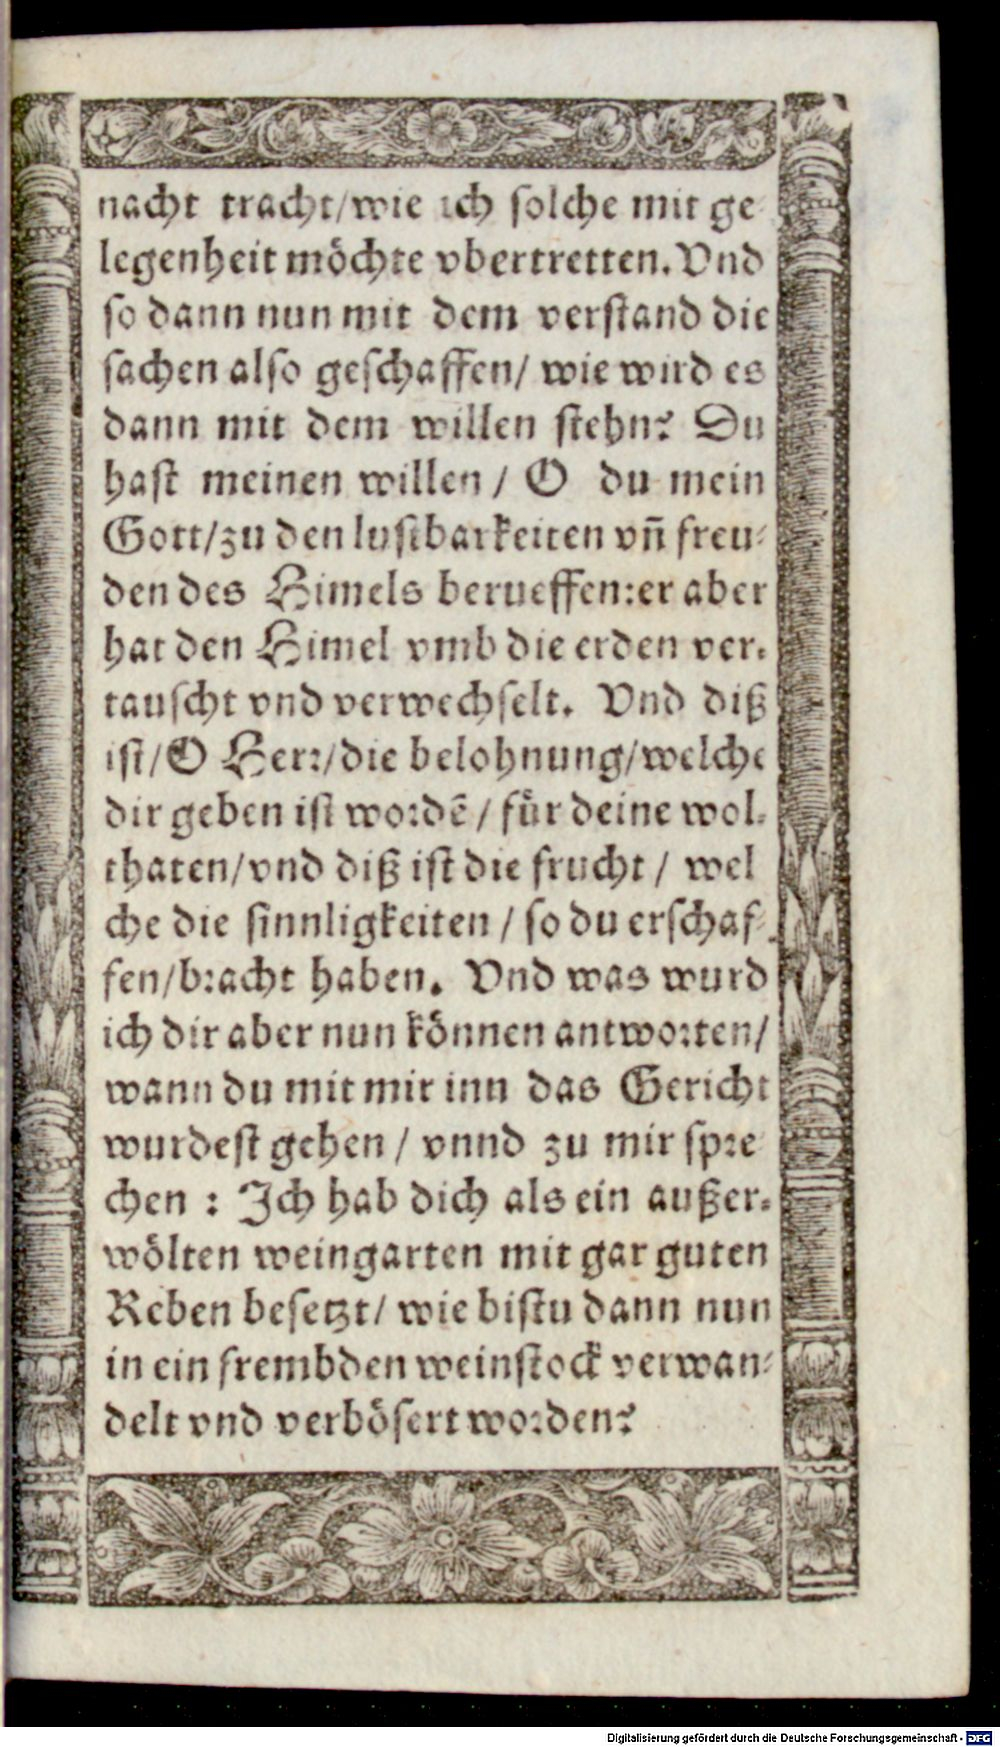 nacht tracht/wie ich ſolche mit ge
legenheit möchte vbertretten. Vnd
ſo dann nun mit dem verſtand die
ſachen alſo geſchaffen/ wie wird es
dann mit dem willen ſtehn? Du
haſt meinen willen / O du mein
Gott/zu den luſtbarkeiten vñ freu-
den des Himels berueffen:er aber
hat den Himel vmb die erden ver-
tauſcht vnd verwechſelt. Vnd diß
iſt/O Herr/die belohnung/welche
dir geben iſt wordē / für deine wol-
thaten/vnd diß iſt die frucht / wel
che die ſinnligkeiten / ſo du erſchaf-
fen/bracht haben. Vnd was wurd
ich dir aber nun können antworten/
wann du mit mir inn das Gericht
wurdeſt gehen / vnnd zu mir ſpre
chen : Ich hab dich als ein außer-
wölten weingarten mit gar guten
Reben beſetzt/ wie biſtu dann nun
in ein frembden weinſtock verwan-
delt vnd verböſert worden?
Digitalisierung gefördert durch die Deutsche Forschungsgemeinschaft - DFG